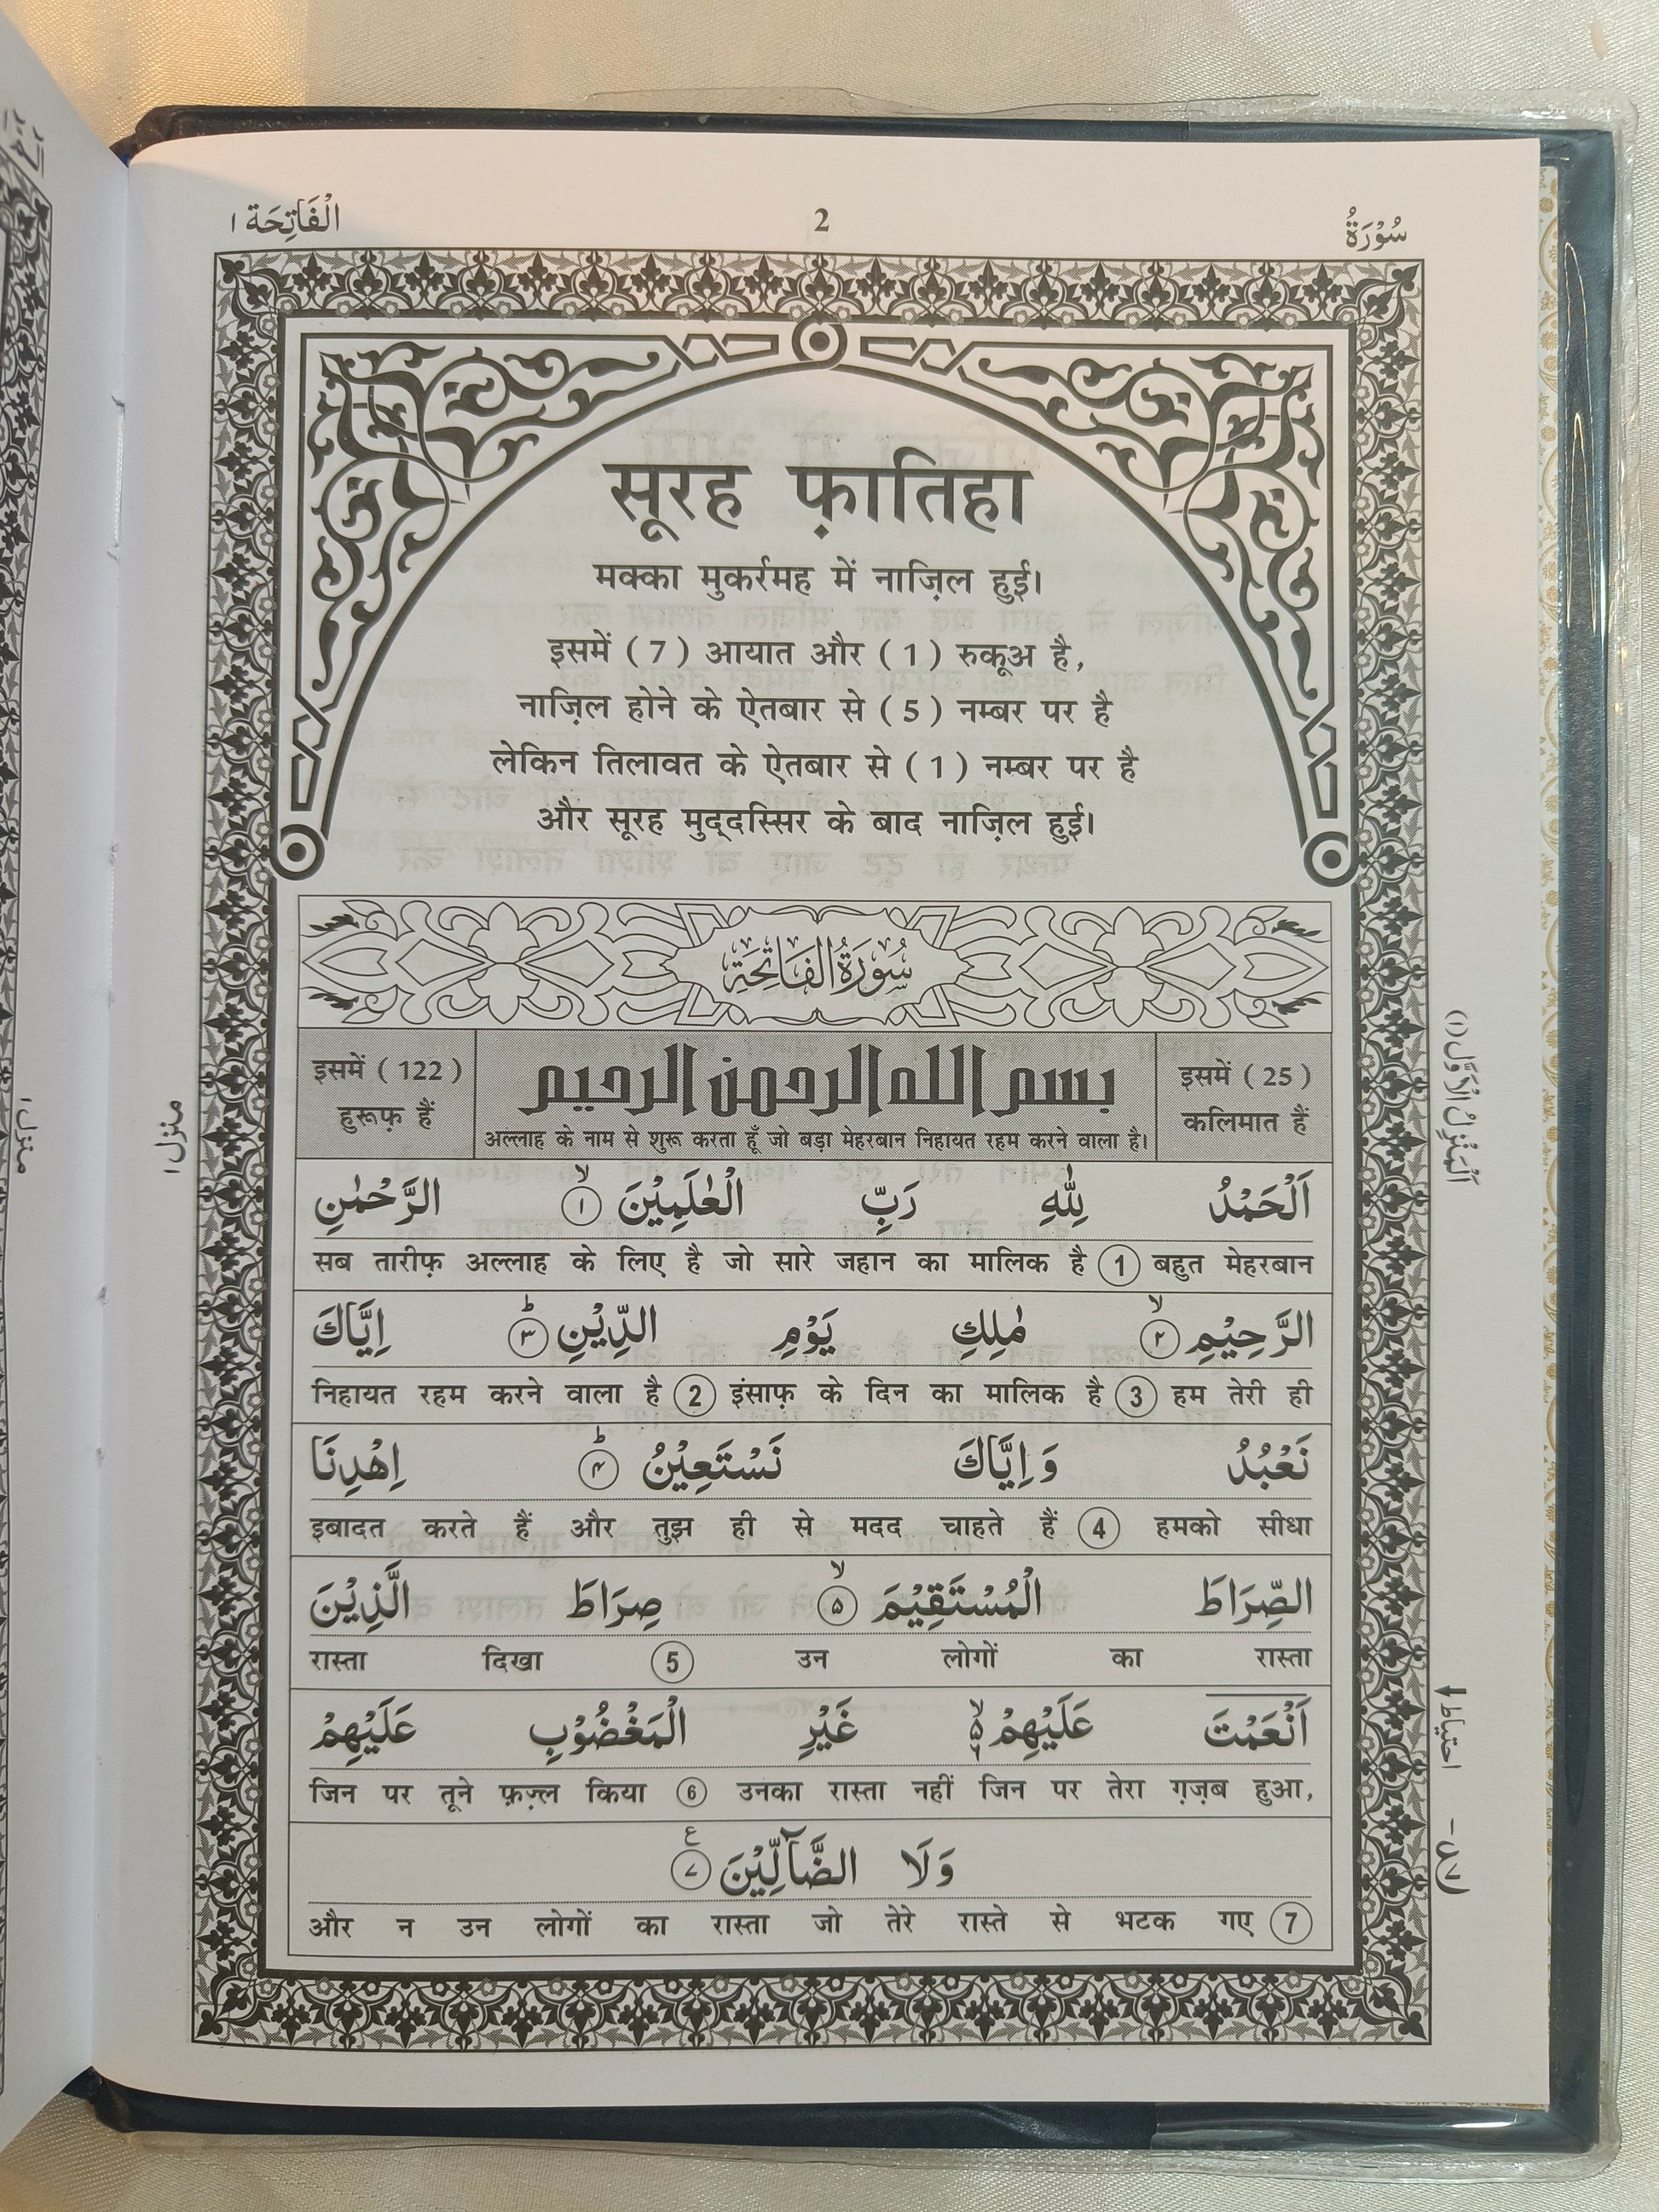 الْفَاتِحَة ١
2
سُوْرَةُ
सूरह फ़ातिहा
मक्का मुकर्रमह में नाज़िल हुई।
इसमें ( 7 ) आयात और ( 1 ) रुकूअ है,
नाज़िल होने के ऐतबार से ( 5 ) नम्बर पर है
लेकिन तिलावत के ऐतबार से ( 1 ) नम्बर पर है
और सूरह मुद्दस्सिर के बाद नाज़िल हुई।
سُورَةُ الفَاتِحَةِ
इसमें ( 122 )
हुरूफ़ हैं
بسم الله الرحمن الرحيم
अल्लाह के नाम से शुरू करता हूँ जो बड़ा मेहरबान निहायत रहम करने वाला है।
इसमें ( 25 )
कलिमात हैं
اَلْحَمْدُ لِلّٰهِ رَبِّ الْعٰلَمِيْنَ ۙ ١ الرَّحْمٰنِ
सब तारीफ़ अल्लाह के लिए है जो सारे जहान का मालिक है 1 बहुत मेहरबान
الرَّحِيْمِ ۙ ٢ مٰلِكِ يَوْمِ الدِّيْنِ ؕ ٣ اِيَّاكَ
निहायत रहम करने वाला है 2 इंसाफ़ के दिन का मालिक है 3 हम तेरी ही
نَعْبُدُ وَاِيَّاكَ نَسْتَعِيْنُ ؕ ۴ اِهْدِنَا
इबादत करते हैं और तुझ ही से मदद चाहते हैं 4 हमको सीधा
الصِّرَاطَ الْمُسْتَقِيْمَ ۙ ۵ صِرَاطَ الَّذِيْنَ
रास्ता दिखा 5 उन लोगों का रास्ता
اَنْعَمْتَ عَلَيْهِمْ ۙ۬ ۶ غَيْرِ الْمَغْضُوْبِ عَلَيْهِمْ
जिन पर तूने फ़ज़्ल किया 6 उनका रास्ता नहीं जिन पर तेरा ग़ज़ब हुआ,
وَلَا الضَّآلِّيْنَ ع ٧
और न उन लोगों का रास्ता जो तेरे रास्ते से भटक गए 7
منزل ١
منزل ١
اَلْمَنْزِلُ الْاَوَّلُ (١)
احتیاط